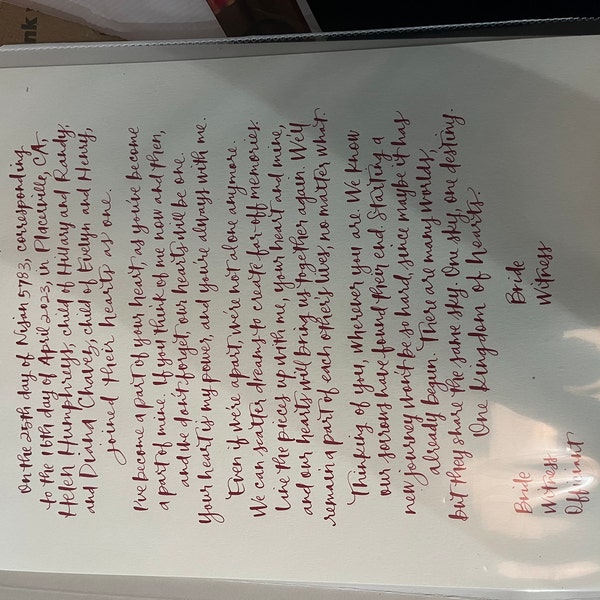 On the 25th day of Nisan 5783, corresponding
to the 16th day of April 2023, in Placerville, CA,
Helen Humphreys, child of Hillary and Randy,
and Diana Chavez, child of Evelyn and Henry,
joined their hearts as one.
I've become a part of your heart, as you've become
a part of mine. If you think of me now and then,
and we don't forget our hearts will be one.
Your heart is my power and you're always with me.
Even if we're apart, we're not alone anymore.
We can scatter dreams to create far-off memories.
Line the pieces up with me, your heart and mine,
and our hearts will bring us together again. We'll
remain a part of each other's lives, no matter what.
Thinking of you, wherever you are. We know
our sorrows have found their end. Starting a
new journey won't be so hard, since maybe it has
already begun. There are many worlds,
but they share the same sky. One sky, one destiny.
One kingdom of hearts.
Bride Bride
Witness Witness
Officiant